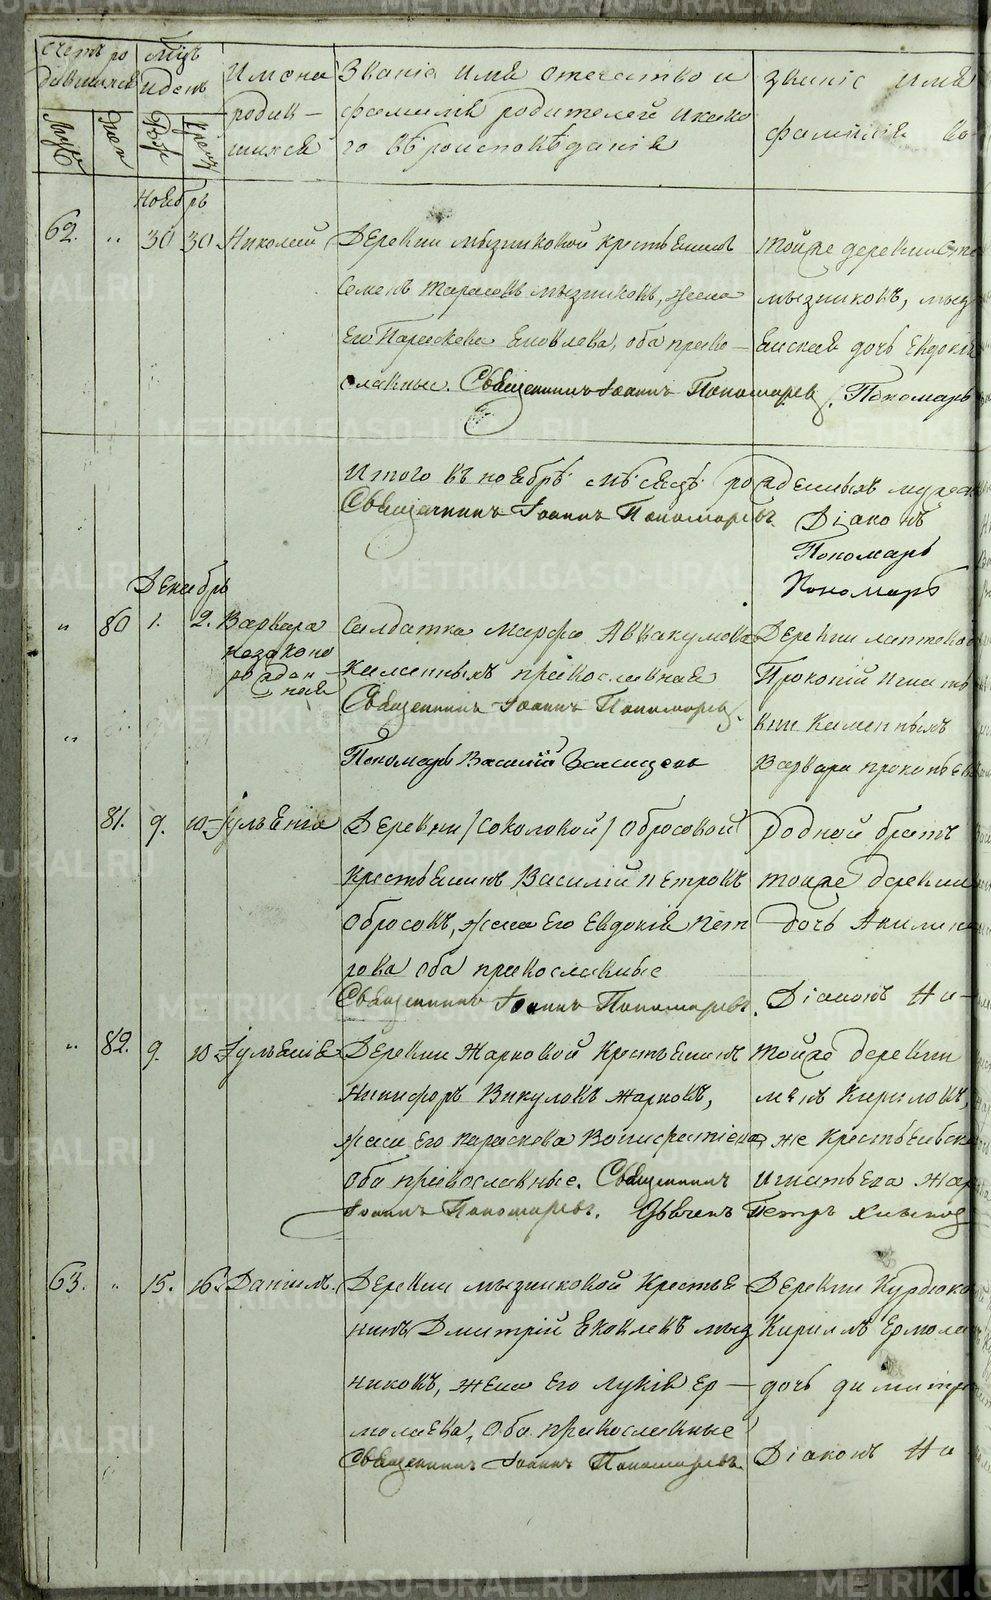 счетъ ро
дившихся
Мцъ
и день
Имена
родив-
шихся
Званіе имя отечество и
фамилія родителей и како
го вѣроисповѣданія
званіе имя
фамилія во
Муж
Жен
Рож
Крещ
Ноябрь
62. „ 30 30 Николай
Деревни Мызниковой крестьянинъ
Семенъ Тарасовъ Мызниковъ, жена
его Параскева Яковлева, оба право-
славные. Священникъ Іоаннъ Пономаревъ
тойже деревни
Мызниковъ, мыз
дочь Евдокія
Пономарь
Итого въ ноябрѣ мѣсяцѣ рожденныхъ муже
Священникъ Іоаннъ Пономаревъ
Діаконъ
Пономарь
Пономарь
Декабрь
„ 80 1. 2. Варвара
незаконо
рожден
ная
Солдатка Марфа Аввакумова
Каменныхъ православная
Священникъ Іоаннъ Пономаревъ
Пономарь Василій
Деревни
Прокопій Игнать
Каменныхъ
Варвара Прокопьева
„
81. 9. 10 Іульянія
Деревни /Соколовой/ Обросовой
крестьянинъ Василій Петровъ
Обросовъ, жена его Евдокія Пет
рова оба православные
Священникъ Іоаннъ Пономаревъ.
родной братъ
тойже деревни
дочь Акилина
Діаконъ Ни-
„ 82. 9. 10 Іульянія
Деревни Жарковой крестьянинъ
Никифоръ Викуловъ Жарковъ,
жена его Параскева Вонифатіева,
оба православные. Священникъ
Іоаннъ Пономаревъ. Дьячекъ Петръ
тойже деревни
Кириловъ,
же крестьянска
Игнатьева Жар
63. „ 15. 16. Даніилъ.
Деревни Мызниковой крестья
нинъ Дмитрій Яковлевъ Мыз
никовъ, жена его Лукія Ер-
молаева, оба православные
Священникъ Іоаннъ Пономаревъ
Деревни Курдюков
Кириллъ Ермола
дочь Димитр
Діаконъ Ни
METRIKI.GASO-URAL.RU